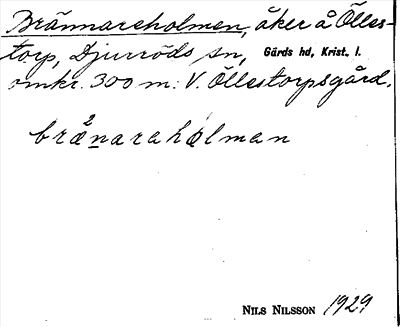 Brännareholmen, åker å Ölles-
torp, Djurröds sn, Gärds hd, Krist. l.
omkr. 300 m. V. Öllestorpsgård.
2
brænaraholman
NILS NILSSON 1929